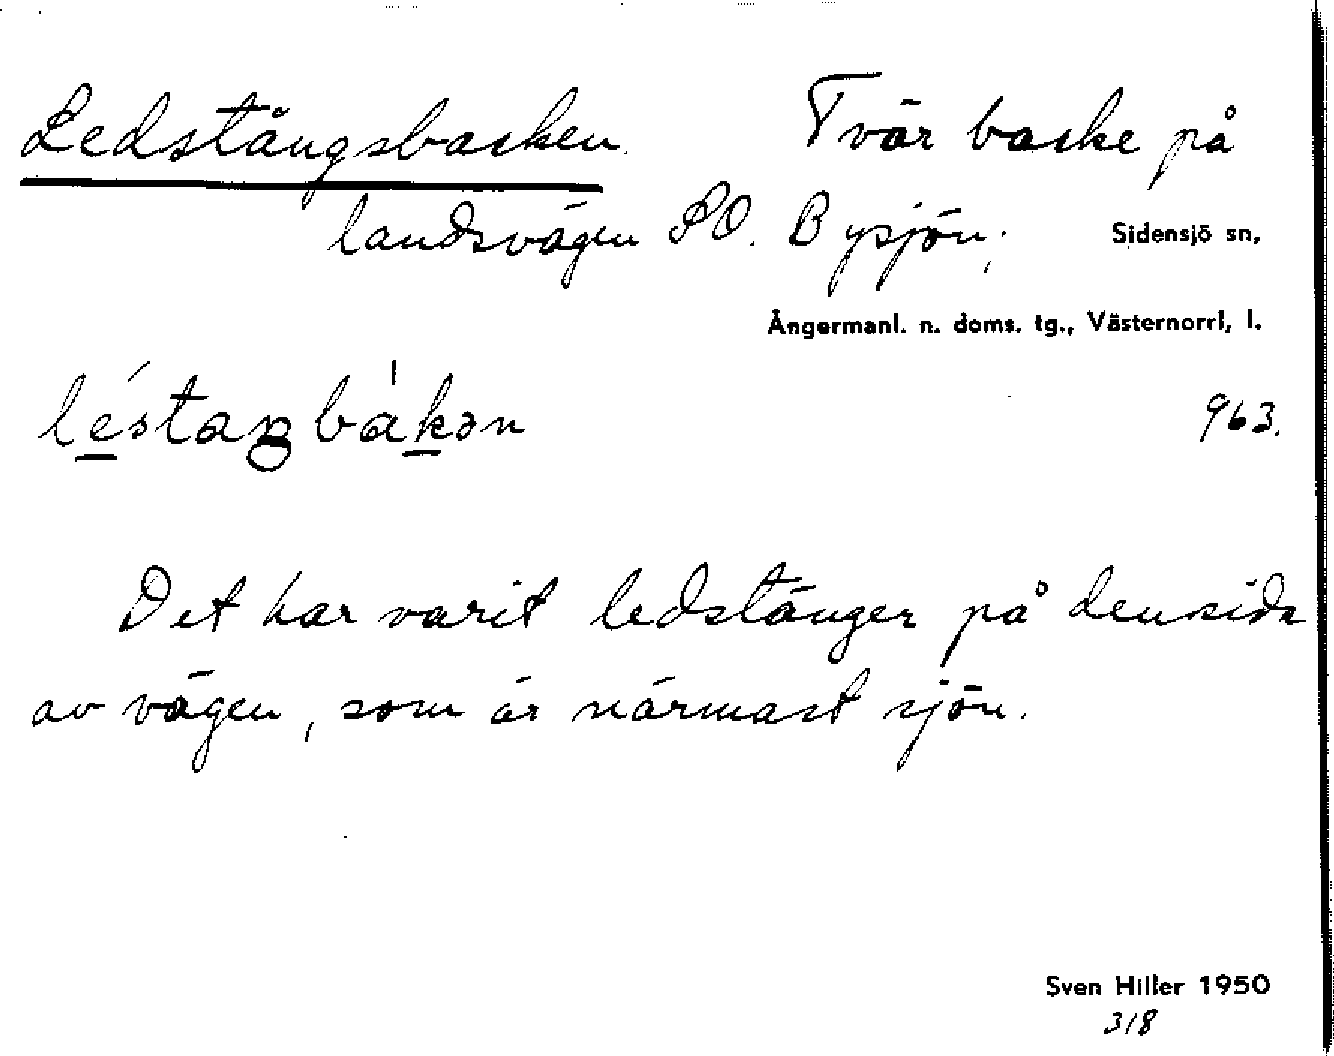 Ledstångsbacken. Tvär backe på
landsvägen SO. Bysjön; Sidensjö sn,
Ångermanl. n. doms. tg., Västernorrl, l.
963.
Det har varit ledstänger på den sida
av vägen, som är närmast sjön.
Sven Hiller 1950
318